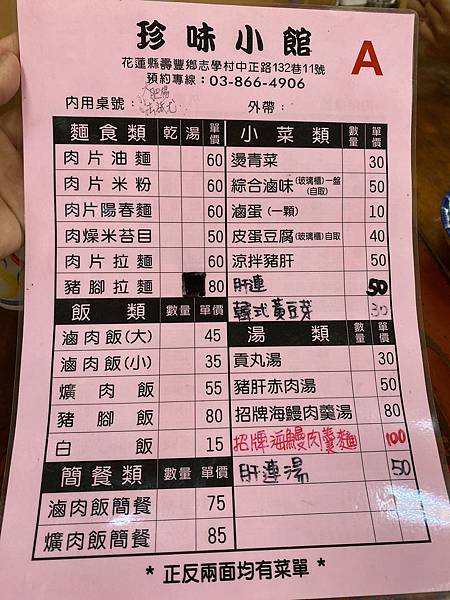 珍味小館
花蓮縣壽豐鄉志學村中正路132巷11號
預約專線：03-866-4906
A
內用桌號：
外帶：
麵食類 乾 湯 單價
肉片油麵 60
肉片米粉 60
肉片陽春麵 60
肉燥米苔目 50
肉片拉麵 60
豬腳拉麵 80
飯類 數量 單價
滷肉飯(大) 45
滷肉飯(小) 35
爌肉飯 55
豬腳飯 80
白飯 15
簡餐類 數量 單價
滷肉飯簡餐 75
爌肉飯簡餐 85
小菜類 數量 單價
燙青菜 30
綜合滷味(玻璃櫃)一盤(自取) 50
滷蛋(一顆) 10
皮蛋豆腐(玻璃櫃)自取 40
涼拌豬肝 50
肝連 50
韓式黃豆芽 30
湯類 數量 單價
貢丸湯 30
豬肝赤肉湯 50
招牌海鰻肉羹湯 80
招牌海鰻肉羹麵 100
肝連湯 50
* 正反兩面均有菜單 *